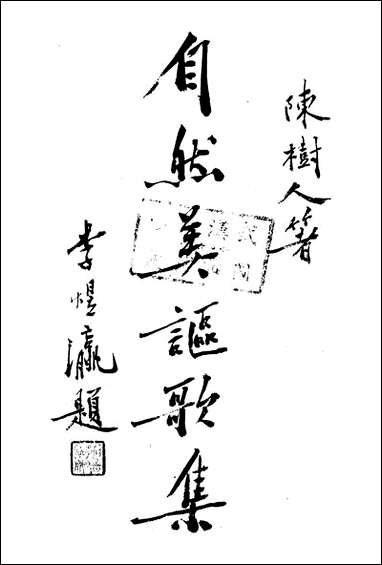 陳樹人著
自然美謳歌集
李煜瀛題